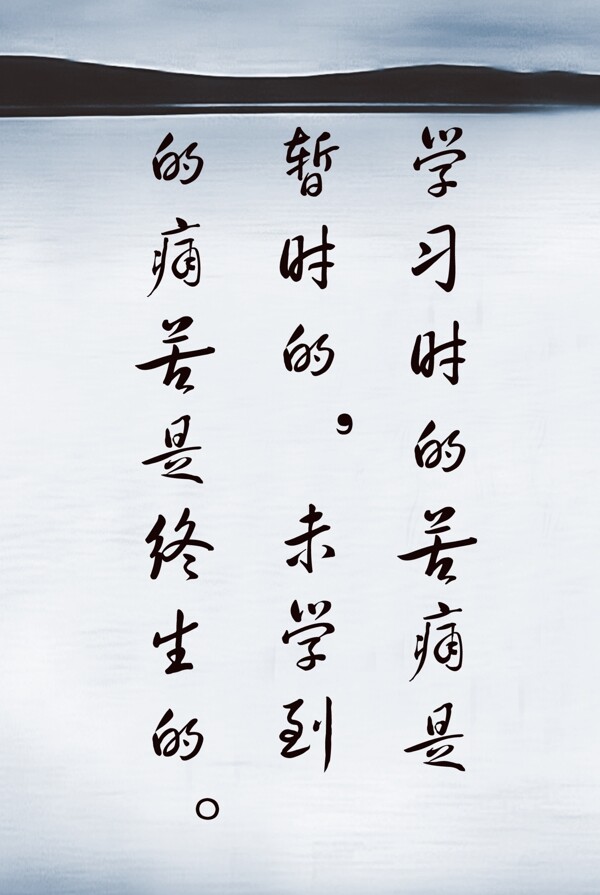 学习时的苦痛是
暂时的，未学到
的痛苦是终生的。